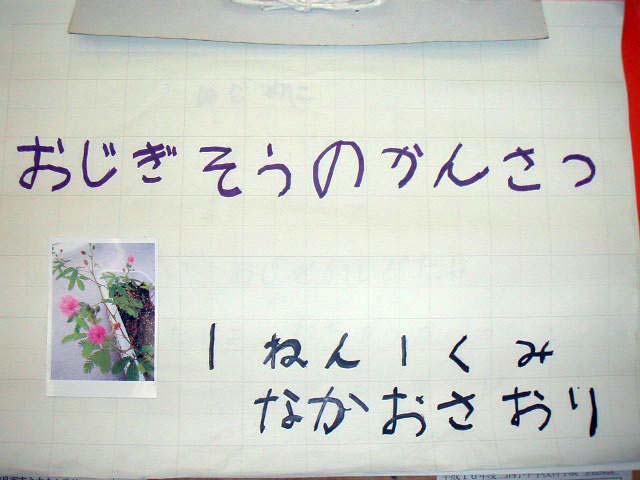 おじぎそうのかんさつ
1ねん1くみ
なかおさおり